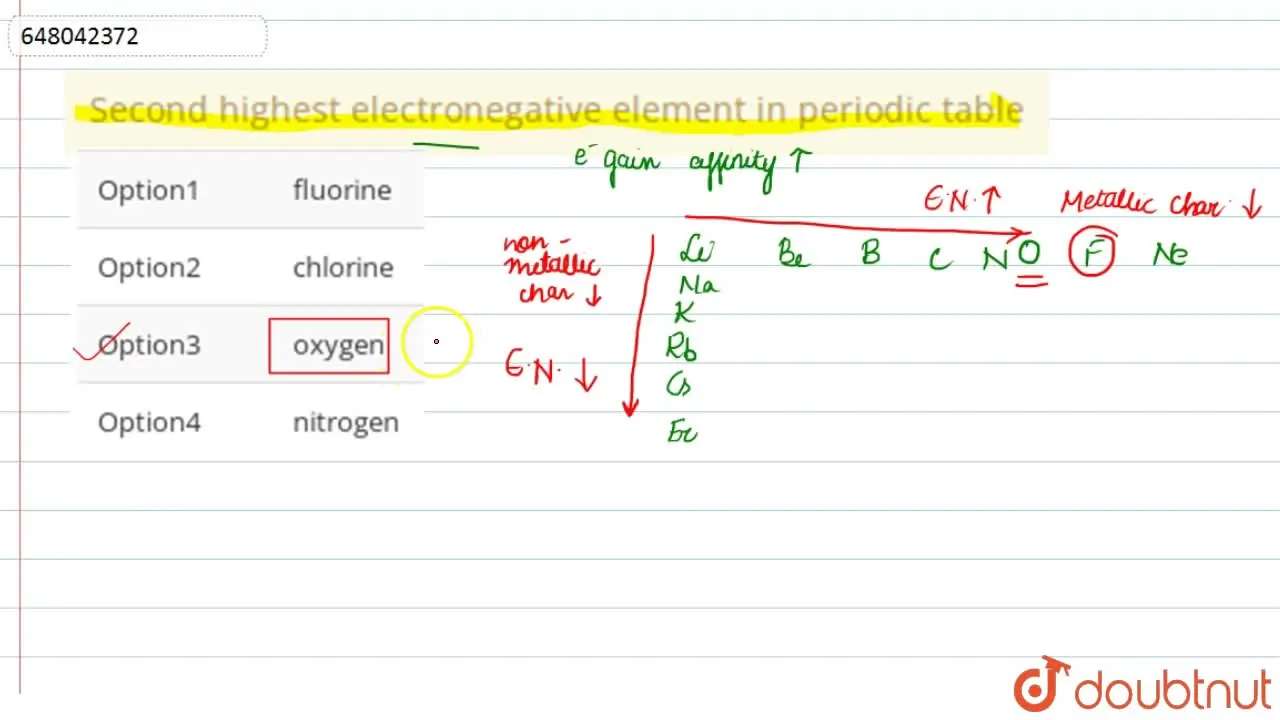 648042372
Second highest electronegative element in periodic table
e⁻ gain affinity ↑
Option1 fluorine
Option2 chlorine
Option3 oxygen
Option4 nitrogen
E.N. ↑ Metallic Char. ↓
non-
metallic
char ↓
E.N. ↓
Li Be B C N O F Ne
Na
K
Rb
Cs
Fr
doubtnut